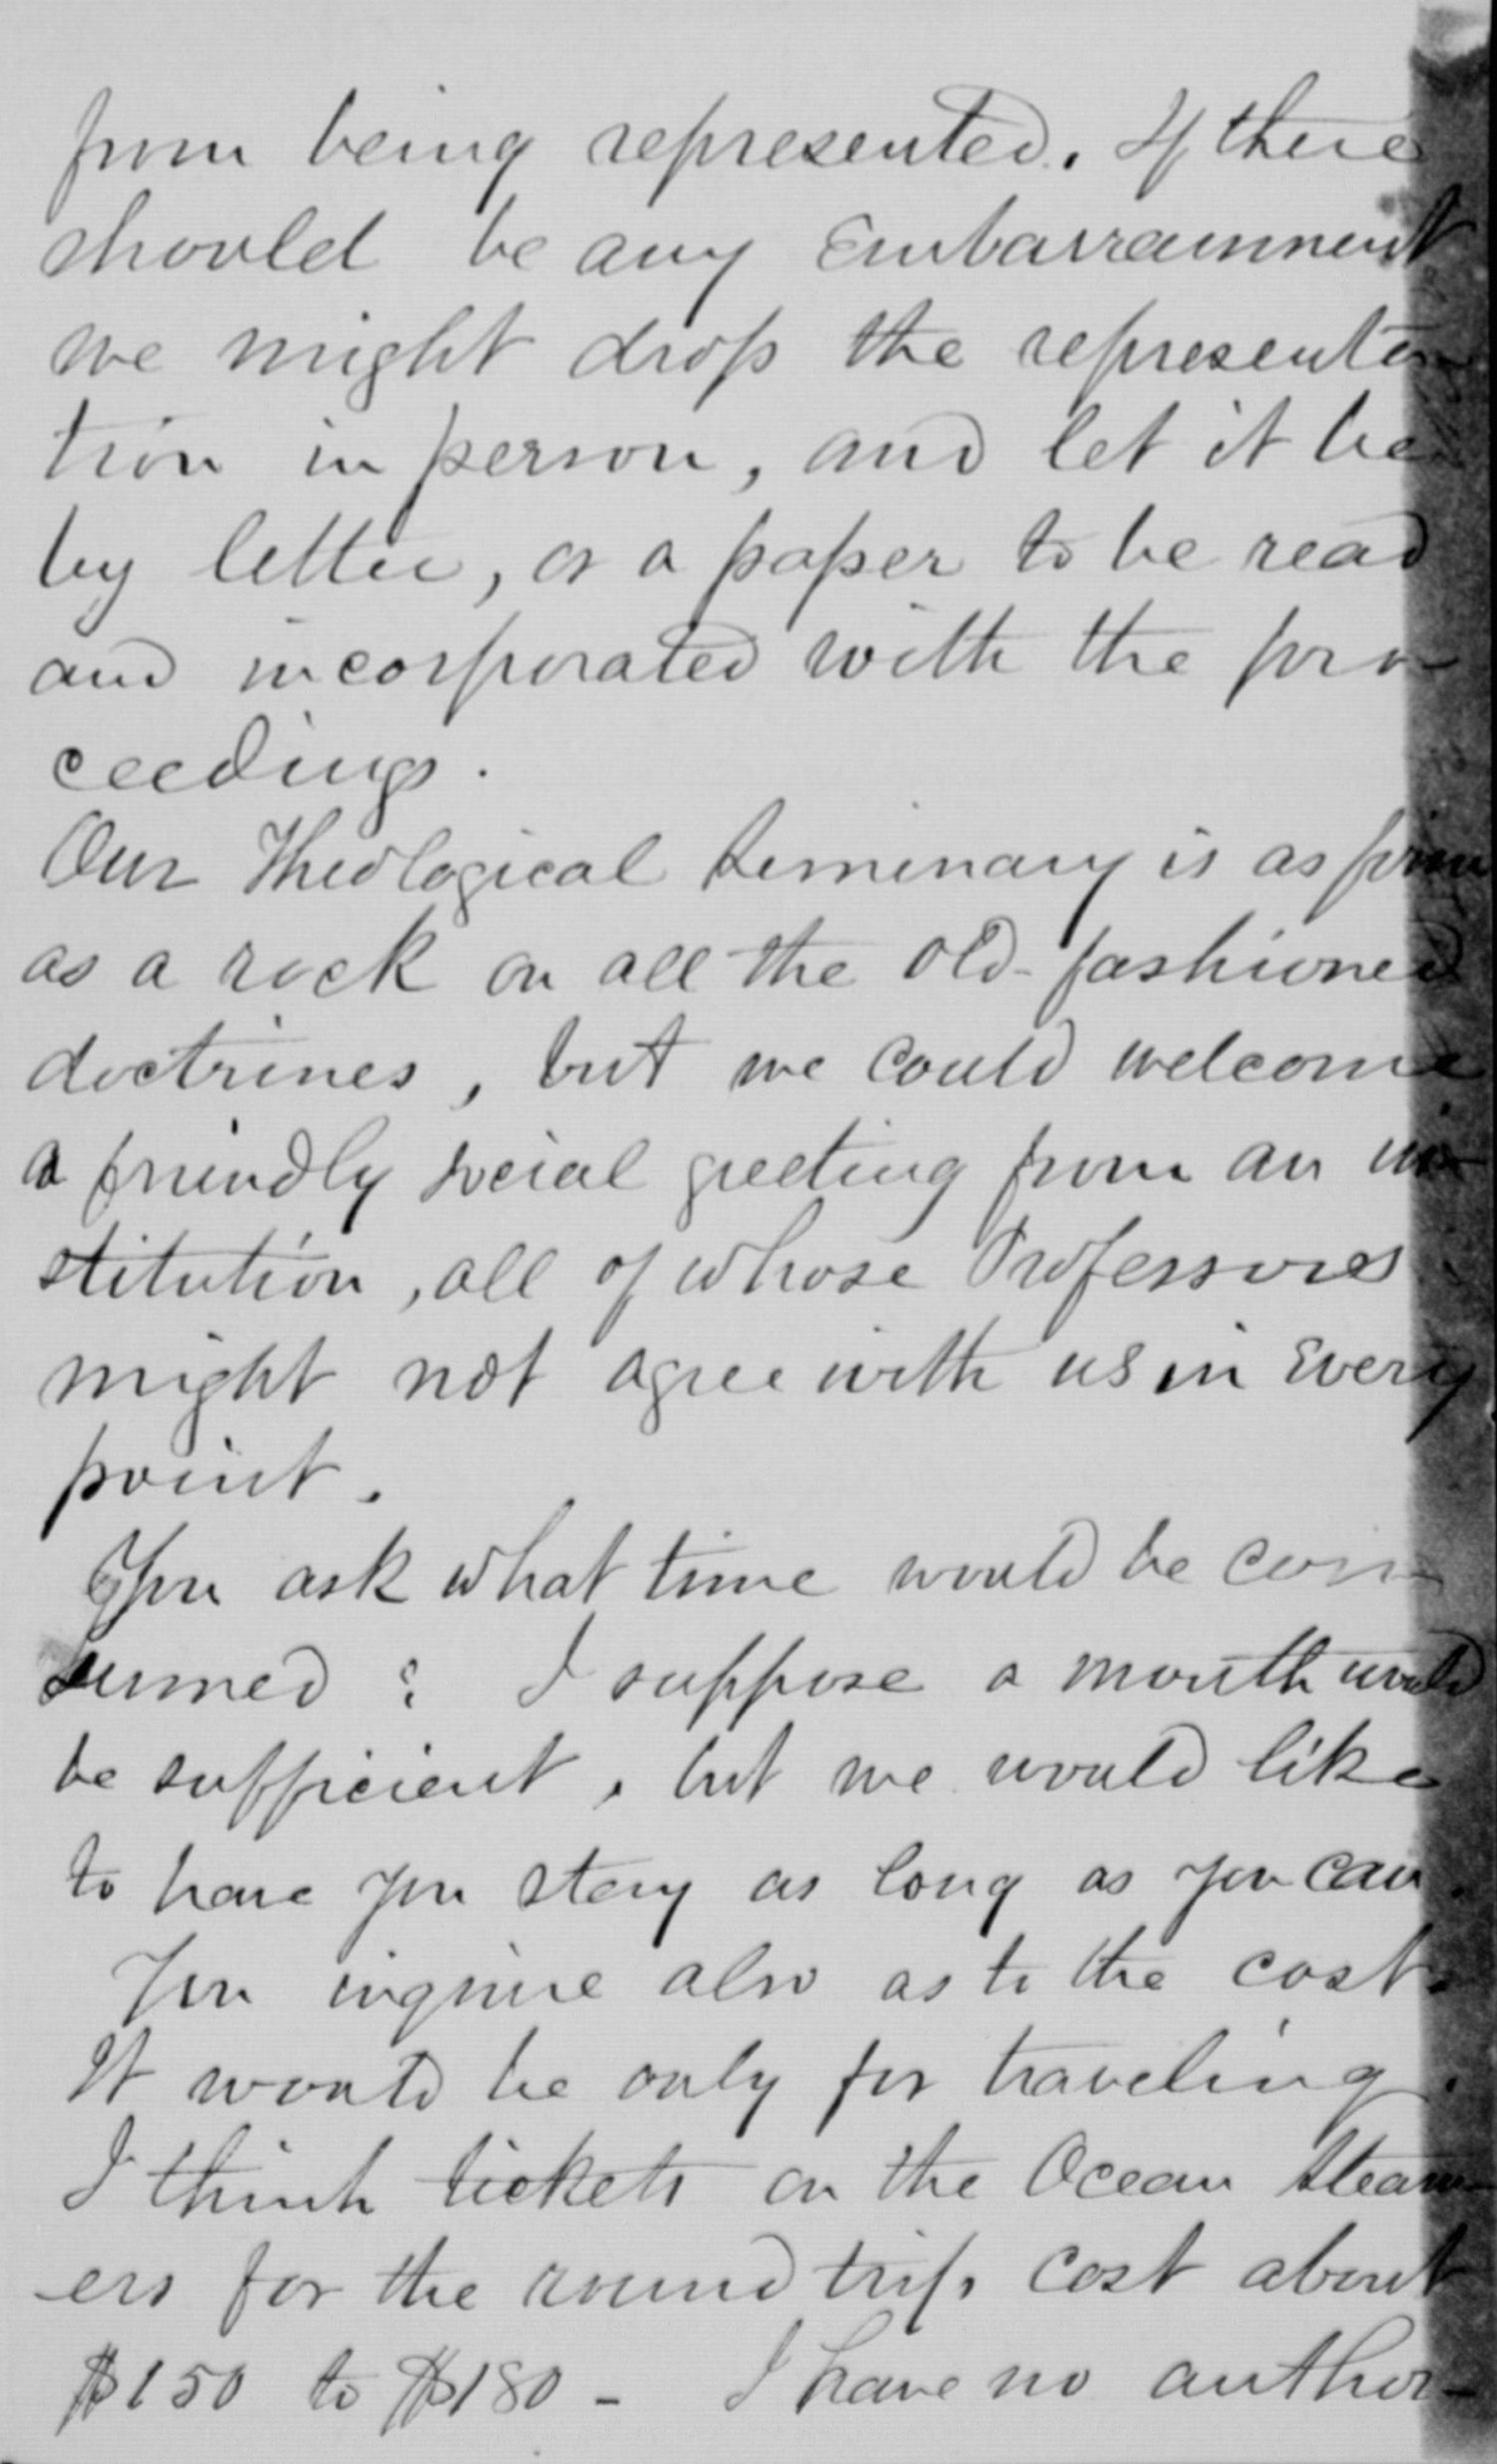 from being represented. If there
should be any Embarrassment
we might drop the representa
tion in person, and let it be
by letter, or a paper to be read
and incorporated with the pro-
ceedings.
Our Theological Seminary is as firm
as a rock on all the old-fashioned
doctrines, but we could welcome
a friendly social greeting from an in-
stitution, all of whose Professors
might not agree with us in Every
point.
You ask what time would be con-
sumed? I suppose a month would
be sufficient, but we would like
to have you stay as long as you can.
You inquire also as to the cost.
It would be only for traveling.
I think tickets on the Ocean Steam-
ers for the round trip cost about
$150 to $180 - I have no author-